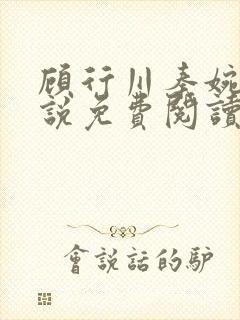 顾行川秦婉
說免費閱讀
會説話的驴